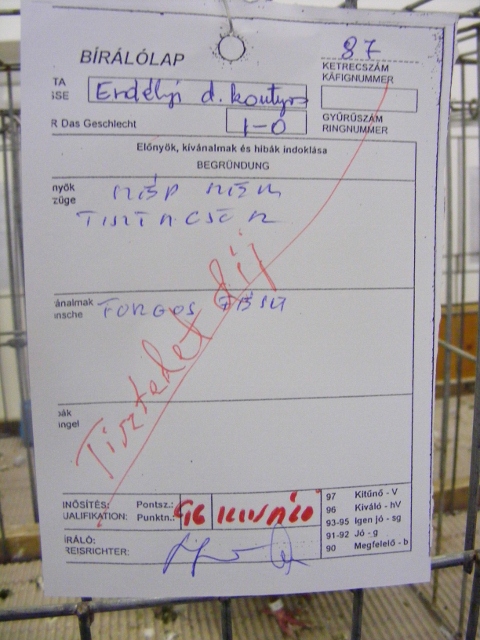 87
BÍRÁLÓLAP
KETRECSZÁM
KÁFIGNUMMER
TA
SE
Erdélyi d. kontyos
R Das Geschlecht
1-0
GYŰRŰSZÁM
RINGNUMMER
Előnyök, kívánalmak és hibák indoklása
BEGRÜNDUNG
nyök
züge
TISZTA CSŐR
ánalmak
nsche
FORGÓS
Tisztelet díj
bák
ngel
INŐSÍTÉS: Pontsz.:
UALIFIKATION: Punktn.:
96 KIVÁLÓ
ÍRÁLÓ:
REISRICHTER:
97 Kitűnő - V
96 Kiváló - hV
93-95 Igen jó - sg
91-92 Jó - g
90 Megfelelő - b